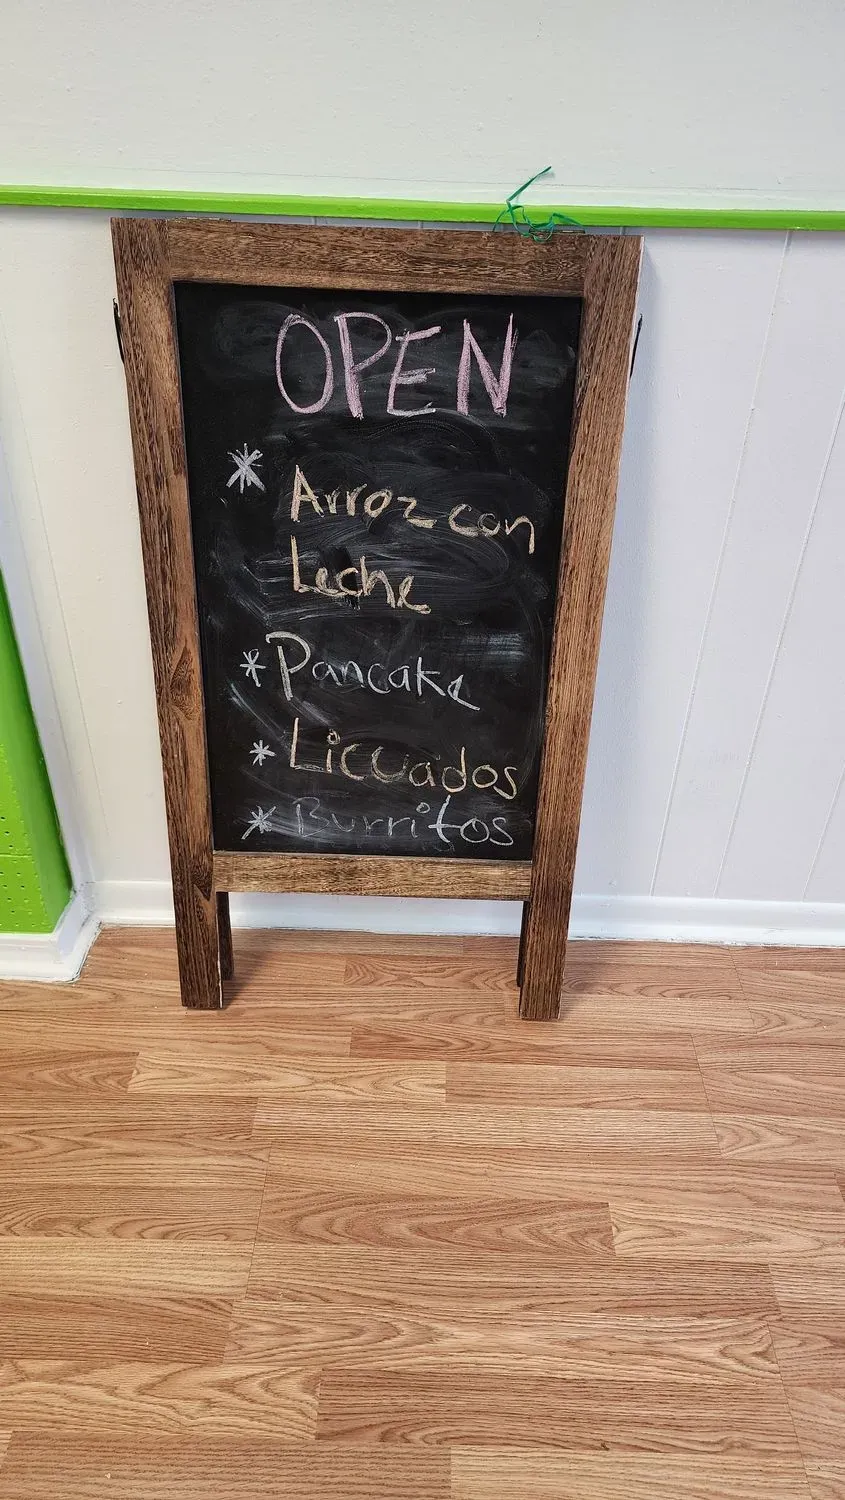 OPEN
* Arroz con
Leche
* Pancake
* Licuados
* Burritos